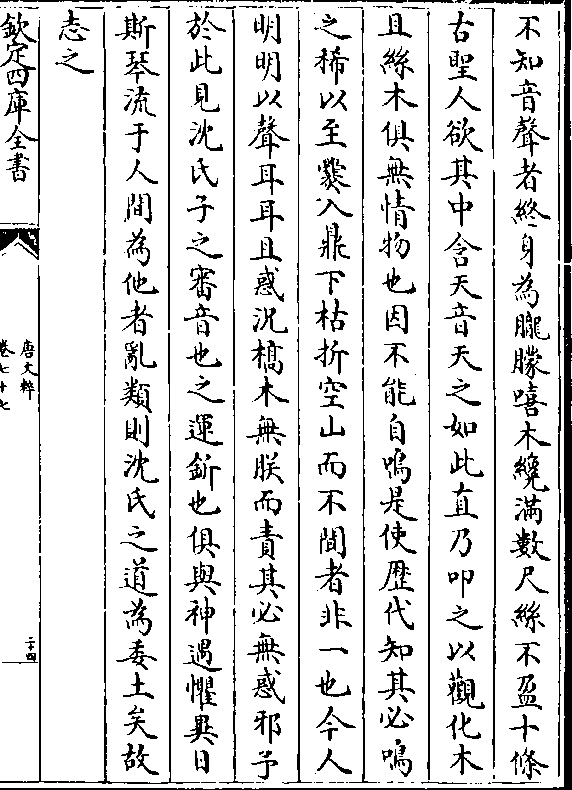 不知音聲者終身為朧朦嘻木纔滿數尺絲不盈十條
古聖人欲其中含天音天之如此直乃叩之以觀化木
且絲木俱無情物也因不能自鳴是使歴代知其必鳴
之稀以至爨入鼎下枯折空山而不間者非一也今人
明明以聲耳耳且惑況槁木無朕而責其必無惑邪予
於此見沈氏子之審音也之運斤也俱與神遇懼異日
斯琴流于人間為他者亂類則沈氏之道為委土矣故
志之
欽定四庫全書
唐文粹
卷七十七
二十四